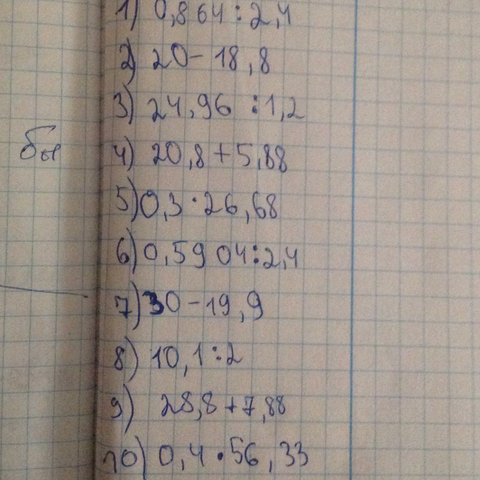 1) 0,864 : 2,4
2) 20 - 18,8
3) 24,96 : 1,2
бы 4) 20,8 + 5,88
5) 0,3 · 26,68
6) 0,5904 : 2,4
7) 30 - 19,9
8) 10,1 : 2
9) 28,8 + 7,88
10) 0,4 · 56,33